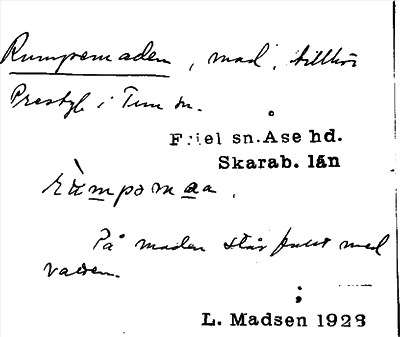 Rumpemaden, mad, tillhör
Prestg. i Tun sn.
Friel sn. Åse hd.
Skarab. län
rùmpomaa.
På maden står fullt med
vatten.
L. Madsen 1928